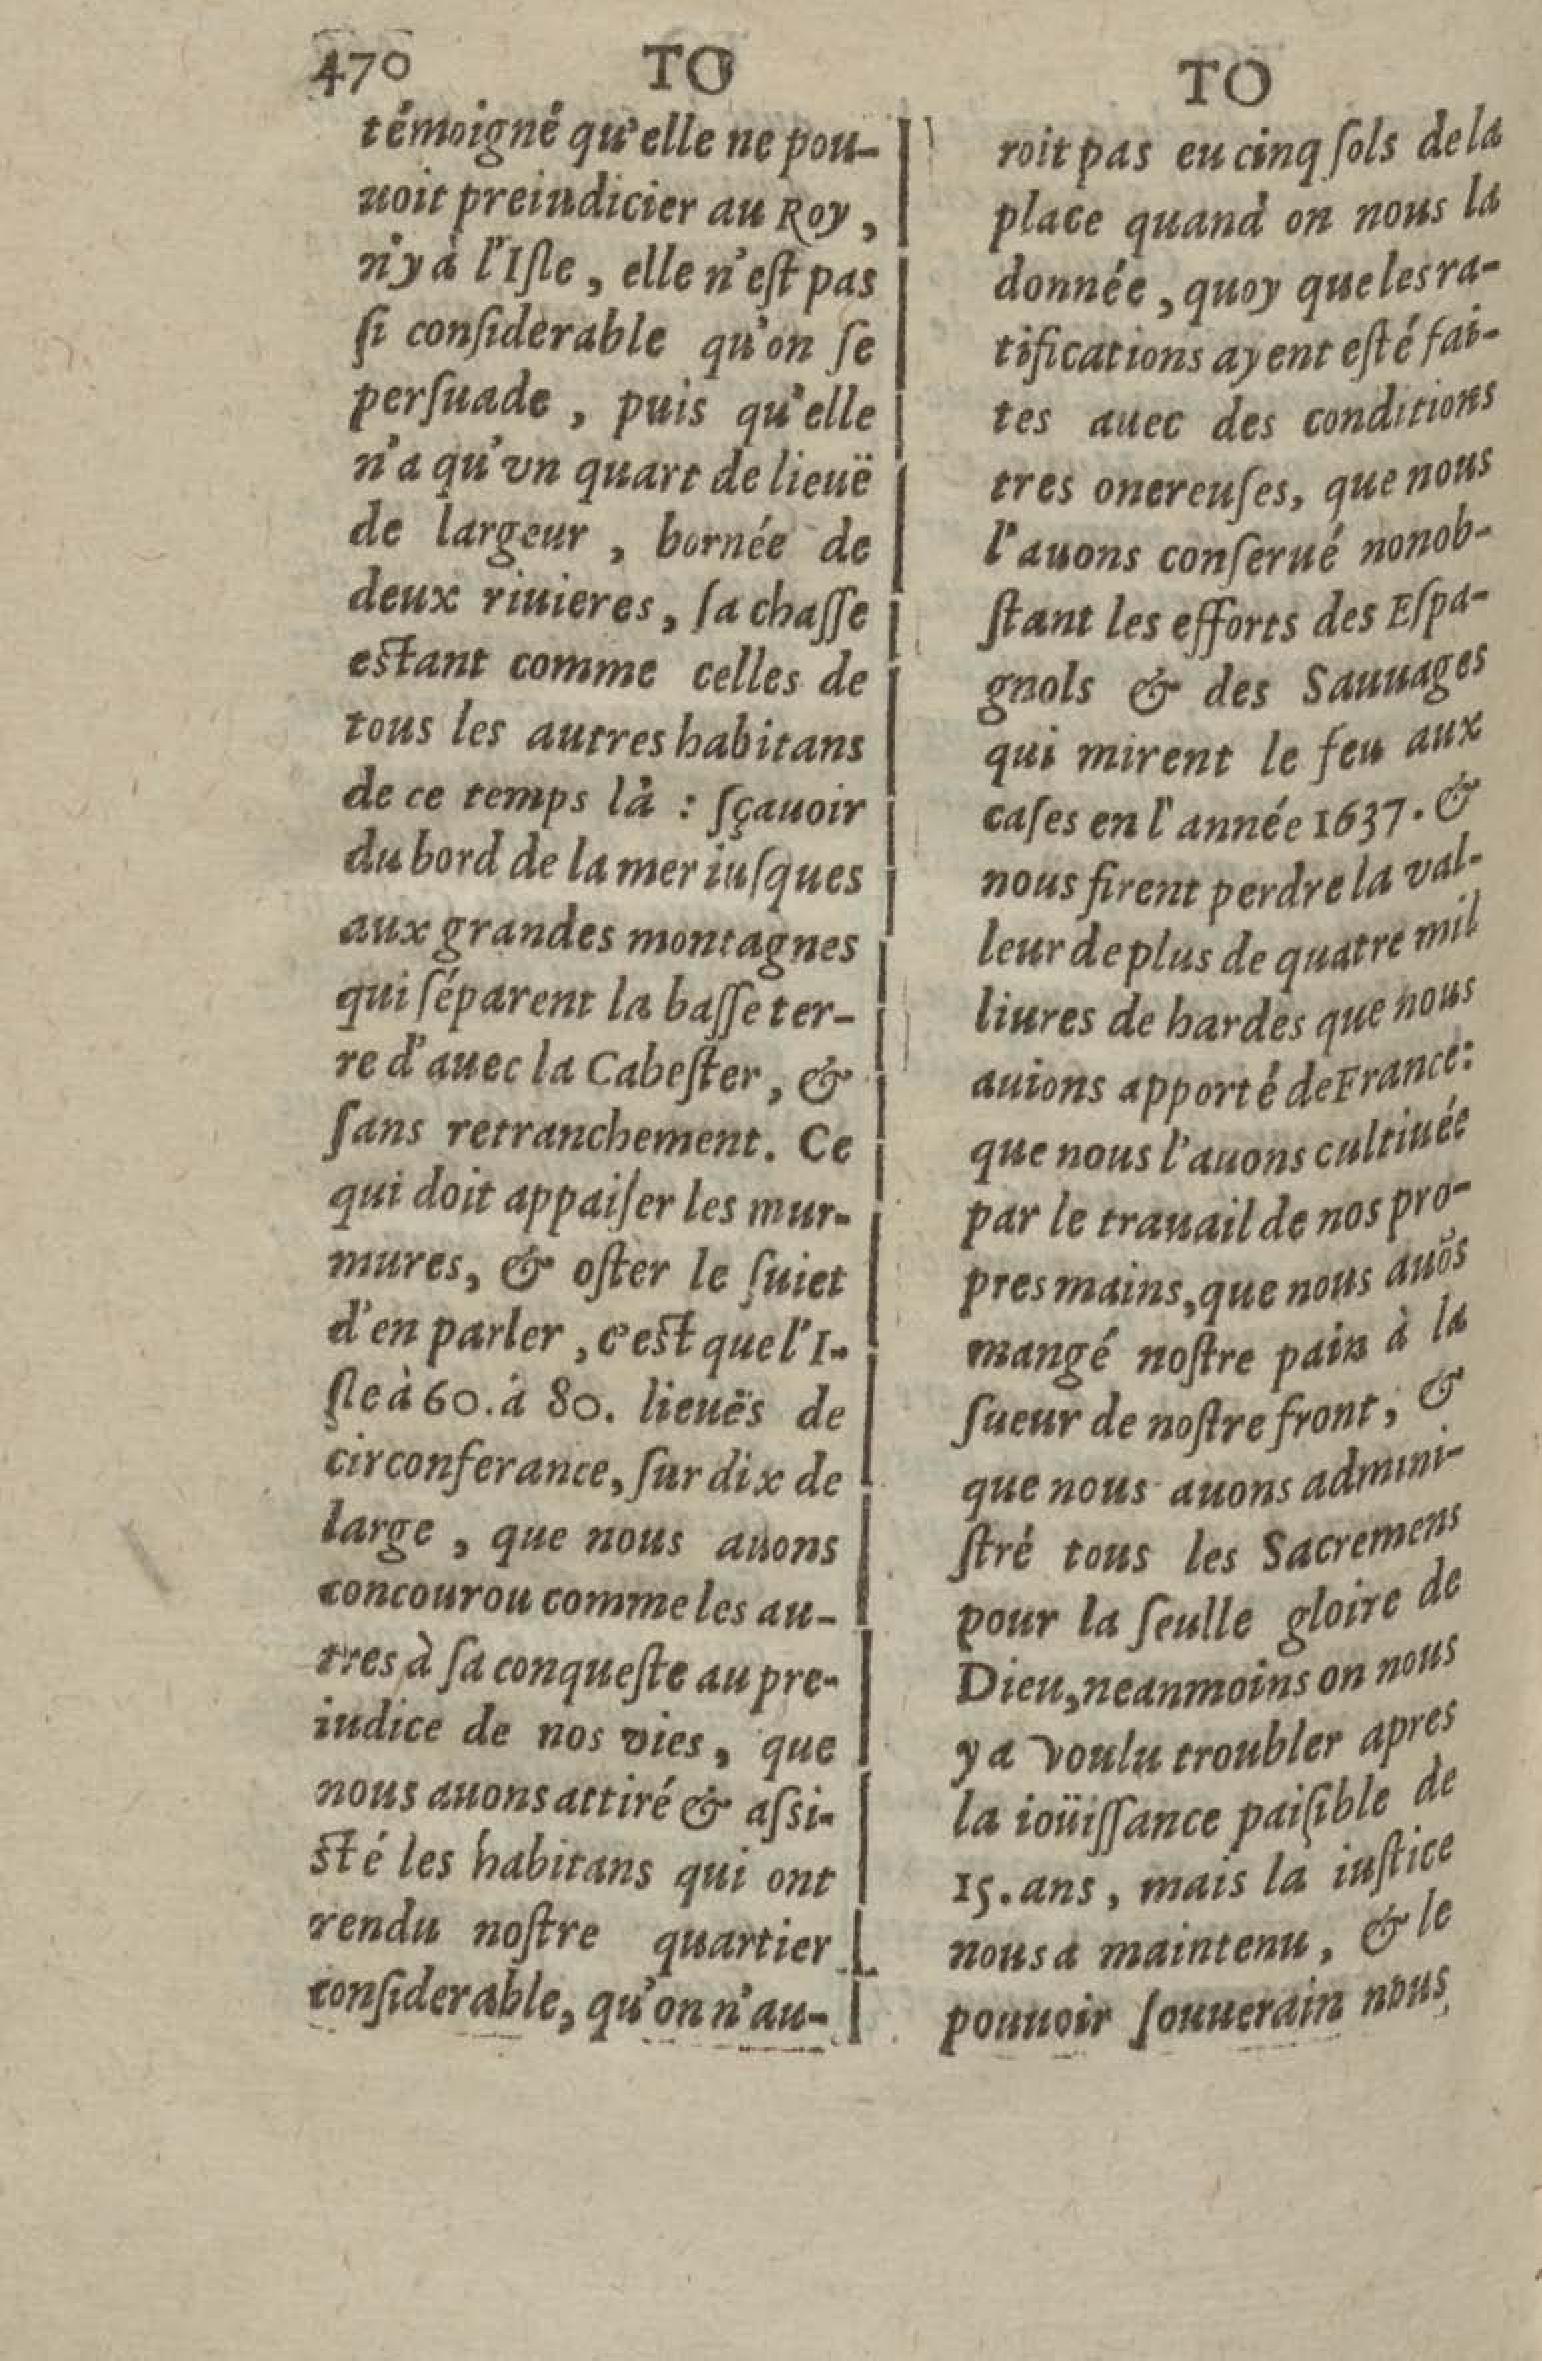 470 TO
témoigné qu'elle ne pou-
uoit preiudicier au Roy,
n'y à l'Iſle, elle n'eſt pas
ſi conſiderable qu'on ſe
perſuade, puis qu'elle
n'a qu'vn quart de lieuë
de largeur, bornée de
deux riuieres, ſa chaſſe
eſtant comme celles de
tous les autres habitans
de ce temps là : ſçauoir
du bord de la mer iuſques
aux grandes montagnes
qui ſéparent la baſſe ter-
re d'auec la Cabeſter, &
ſans retranchement. Ce
qui doit appaiſer les mur-
mures, & oſter le ſuiet
d'en parler, c'eſt que l'I-
ſle à 60. à 80. lieuës de
circonferance, ſur dix de
large, que nous auons
concourou comme les au-
tres à ſa conqueſte au pre-
iudice de nos vies, que
nous auons attiré & aſsi-
ſté les habitans qui ont
rendu noſtre quartier
conſiderable, qu'on n'au-
TO
roit pas eu cinq ſols de la
place quand on nous la
donnée, quoy que les ra-
tifications ayent eſté fai-
tes auec des conditions
tres onereuſes, que nous
l'auons conſerué nonob-
ſtant les efforts des Eſpa-
gnols & des Sauuages
qui mirent le feu aux
caſes en l'année 1637. &
nous firent perdre la val-
leur de plus de quatre mil
liures de hardes que nous
auions apporté de France:
que nous l'auons cultiuée
par le trauail de nos pro-
pres mains, que nous auõs
mangé noſtre pain à la
ſueur de noſtre front, &
que nous auons admini-
ſtré tous les Sacremens
pour la ſeulle gloire de
Dieu, neanmoins on nous
y a voulu troubler apres
la ioüiſſance paiſible de
15. ans, mais la iuſtice
nous a maintenu, & le
pouuoir ſouuerain nous